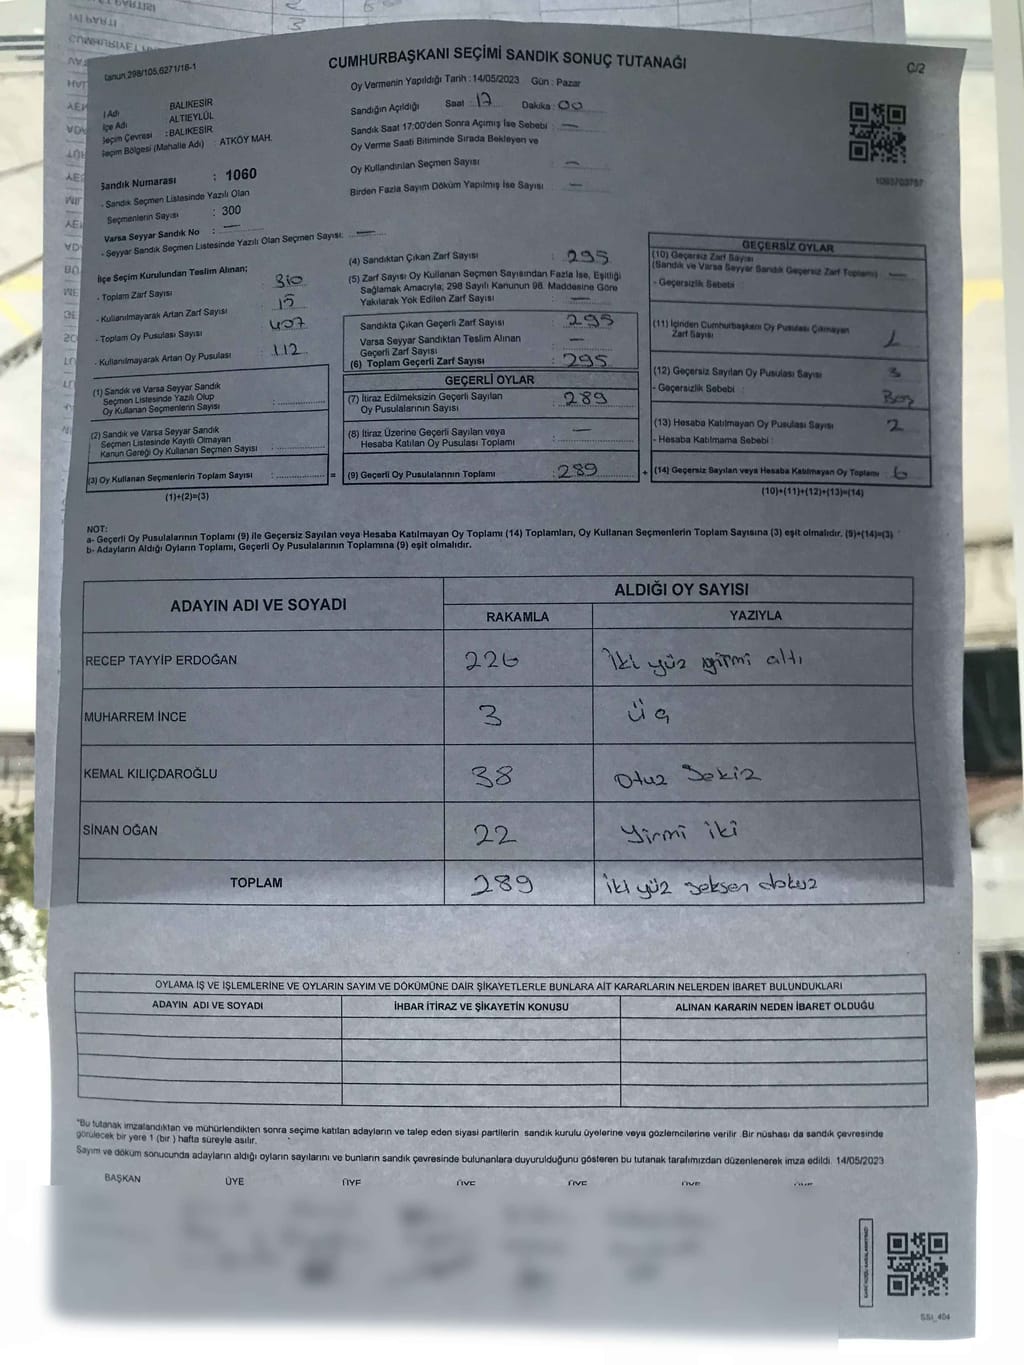 CUMHURBAŞKANI SEÇİMİ SANDIK SONUÇ TUTANAĞI
C/2
Oy Vermenin Yapıldığı Tarih : 14/05/2023 Gün : Pazar
Sandığın Açıldığı Saat : 17 Dakika : 00
Sandık Saat 17:00'den Sonra Açımış İse Sebebi : —
Oy Verme Saati Bitiminde Sırada Bekleyen ve
Oy Kullandırılan Seçmen Sayısı : —
Birden Fazla Sayım Döküm Yapılmış İse Sayısı : —
BALIKESİR
İlçe Adı ALTIEYLÜL
Seçim Çevresi : BALIKESİR
Seçim Bölgesi (Mahalle Adı) : ATKÖY MAH.
Sandık Numarası : 1060
- Sandık Seçmen Listesinde Yazılı Olan
Seçmenlerin Sayısı : 300
Varsa Seyyar Sandık No : —
- Seyyar Sandık Seçmen Listesinde Yazılı Olan Seçmen Sayısı: —
İlçe Seçim Kurulundan Teslim Alınan;
- Toplam Zarf Sayısı : 310
- Kullanılmayarak Artan Zarf Sayısı : 15
- Toplam Oy Pusulası Sayısı : 407
- Kullanılmayarak Artan Oy Pusulası : 112
(1) Sandık ve Varsa Seyyar Sandık
Seçmen Listesinde Yazılı Olup
Oy Kullanan Seçmenlerin Sayısı :
(2) Sandık ve Varsa Seyyar Sandık
Seçmen Listesinde Kayıtlı Olmayan
Kanun Gereği Oy Kullanan Seçmen Sayısı :
(3) Oy Kullanan Seçmenlerin Toplam Sayısı : =
(1)+(2)=(3)
(4) Sandıktan Çıkan Zarf Sayısı : 295
(5) Zarf Sayısı Oy Kullanan Seçmen Sayısından Fazla İse, Eşitliği
Sağlamak Amacıyla; 298 Sayılı Kanunun 98. Maddesine Göre
Yakılarak Yok Edilen Zarf Sayısı : —
Sandıkta Çıkan Geçerli Zarf Sayısı : 295
Varsa Seyyar Sandıktan Teslim Alınan
Geçerli Zarf Sayısı : —
(6) Toplam Geçerli Zarf Sayısı : 295
GEÇERLİ OYLAR
(7) İtiraz Edilmeksizin Geçerli Sayılan
Oy Pusulalarının Sayısı : 289
(8) İtiraz Üzerine Geçerli Sayılan veya
Hesaba Katılan Oy Pusulası Toplamı : —
(9) Geçerli Oy Pusulalarının Toplamı : 289 +
GEÇERSİZ OYLAR
(10) Geçersiz Zarf Sayısı
(Sandık ve Varsa Seyyar Sandık Geçersiz Zarf Toplamı) : —
- Geçersizlik Sebebi :
(11) İçinden Cumhurbaşkanı Oy Pusulası Çıkmayan
Zarf Sayısı : 1
(12) Geçersiz Sayılan Oy Pusulası Sayısı : 3
- Geçersizlik Sebebi : Boş
(13) Hesaba Katılmayan Oy Pusulası Sayısı : 2
- Hesaba Katılmama Sebebi :
(14) Geçersiz Sayılan veya Hesaba Katılmayan Oy Toplamı : 6
(10)+(11)+(12)+(13)=(14)
NOT:
a- Geçerli Oy Pusulalarının Toplamı (9) ile Geçersiz Sayılan veya Hesaba Katılmayan Oy Toplamı (14) Toplamları, Oy Kullanan Seçmenlerin Toplam Sayısına (3) eşit olmalıdır. (9)+(14)=(3)
b- Adayların Aldığı Oyların Toplamı, Geçerli Oy Pusulalarının Toplamına (9) eşit olmalıdır.
ADAYIN ADI VE SOYADI
ALDIĞI OY SAYISI
RAKAMLA YAZIYLA
RECEP TAYYİP ERDOĞAN 226 İki yüz yirmi altı
MUHARREM İNCE 3 Üç
KEMAL KILIÇDAROĞLU 38 Otuz Sekiz
SİNAN OĞAN 22 Yirmi iki
TOPLAM 289 İki yüz seksen dokuz
OYLAMA İŞ VE İŞLEMLERİNE VE OYLARIN SAYIM VE DÖKÜMÜNE DAİR ŞİKAYETLERLE BUNLARA AİT KARARLARIN NELERDEN İBARET BULUNDUKLARI
ADAYIN ADI VE SOYADI İHBAR İTİRAZ VE ŞİKAYETİN KONUSU ALINAN KARARIN NEDEN İBARET OLDUĞU
*Bu tutanak imzalandıktan ve mühürlendikten sonra seçime katılan adayların ve talep eden siyasi partilerin sandık kurulu üyelerine veya gözlemcilerine verilir. Bir nüshası da sandık çevresinde
görülecek bir yere 1 (bir ) hafta süreyle asılır.
Sayım ve döküm sonucunda adayların aldığı oyların sayılarını ve bunların sandık çevresinde bulunanlara duyurulduğunu gösteren bu tutanak tarafımızdan düzenlenerek imza edildi. 14/05/2023
BAŞKAN ÜYE ÜYE ÜYE ÜYE ÜYE